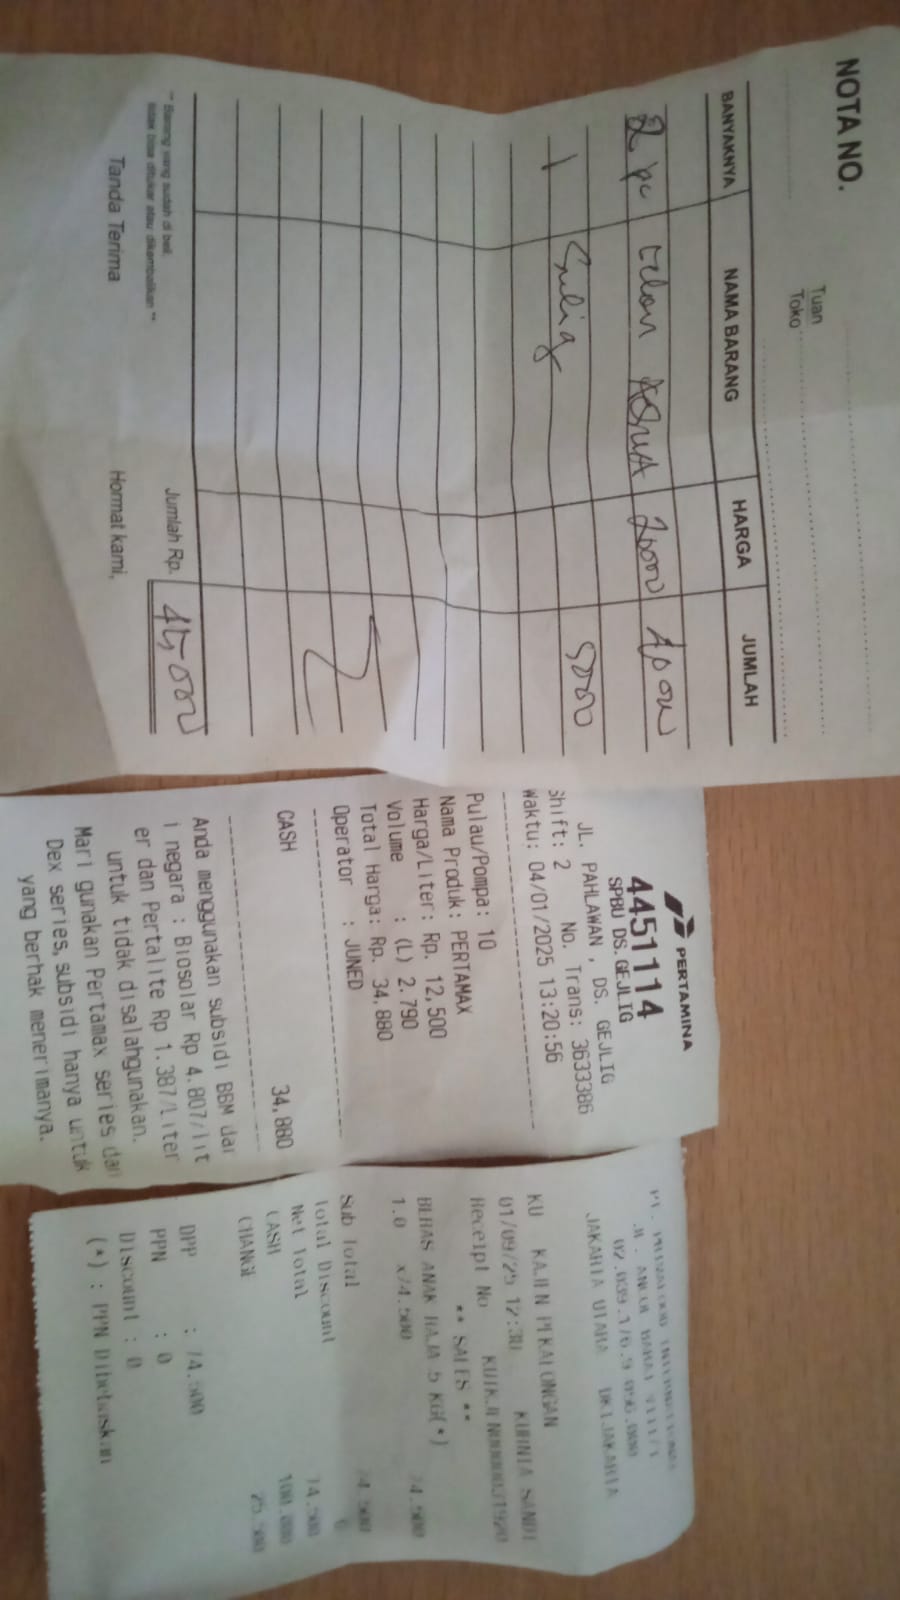 NOTA NO.
Tuan
Toko
BANYAKNYA NAMA BARANG HARGA JUMLAH
2 pc AQUA 20000 40000
1 5000
Jumlah Rp. 45,000
** Barang yang sudah di beli
tidak bisa ditukar atau dikembalikan **
Tanda Terima Hormat kami,
PERTAMINA
4451114
SPBU DS.GEJLIG
JL. PAHLAWAN , DS. GEJLIG
Shift: 2 No. Trans: 3633386
Waktu: 04/01/2025 13:20:56
Pulau/Pompa: 10
Nama Produk: PERTAMAX
Harga/Liter: Rp. 12,500
Volume : (L) 2.790
Total Harga: Rp. 34,880
Operator : JUNED
CASH 34,880
Anda menggunakan subsidi BBM dar
i negara : Biosolar Rp 4.807/lit
er dan Pertalite Rp 1.387/Liter
untuk tidak disalahgunakan.
Mari gunakan Pertamax series dan
Dex series, subsidi hanya untuk
yang berhak menerimanya.
JL. ANCOL BARAT
JAKARTA UTARA DKI JAKARTA
KU KAJEN PEKALONGAN
01/09/25 12:30 KURNIA SANDI
Receipt No
** SALES **
BERAS ANAK RAJA 5 KG(*)
1.0 x74.500 74.500
Sub Total 74.500
Total Discount 0
Net Total 74.500
CASH 100.000
CHANGE 25.500
DPP : 74.500
PPN : 0
Discount : 0
(*) : PPN Dibebaskan